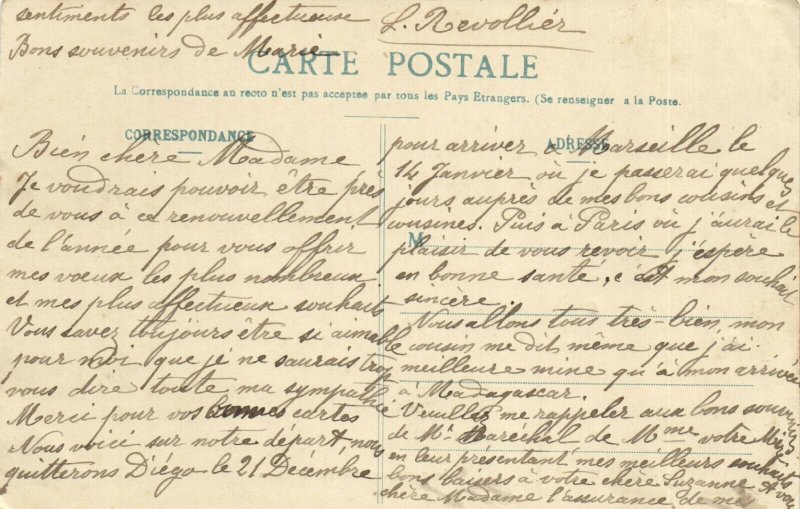 sentiments les plus affectueuse L. Revollier
Bons souvenirs de Marie
CARTE POSTALE
La Correspondance au recto n'est pas acceptée par tous les Pays Etrangers. (Se renseigner a la Poste.
CORRESPONDANCE
Bien chère Madame
Je voudrais pouvoir être près
de vous à ce renouvellement
de l'année pour vous offrir
mes voeux les plus nombreux
et mes plus affectueux souhaits
Vous savez toujours etre si aimable
pour moi que je ne saurais trop
vous dire toute ma sympathie
Merci pour vos bonnes cartes
Nous voici sur notre départ, nous
quitterons Diégo le 21 Décembre
ADRESSE
pour arriver à Marseille le
14 Janvier où je passerai quelques
jours auprès de mes bons cousins et
cousines. Puis à Paris où j'aurai le
M
plaisir de vous revoir j'espère
en bonne sante, c'est mon souhait
sincère.
Nous allons tous très-bien, mon
cousin me dit même que j'ai
meilleure mine qu'à mon arrivée
à Madagascar.
Veuillez me rappeler aux bons souvenirs
de Mr Maréchal de Mme votre Mère
en leur présentant mes meilleurs souhaits
bons baisers à votre chère Suzanne A vous
chère Madame l'assurance de mes